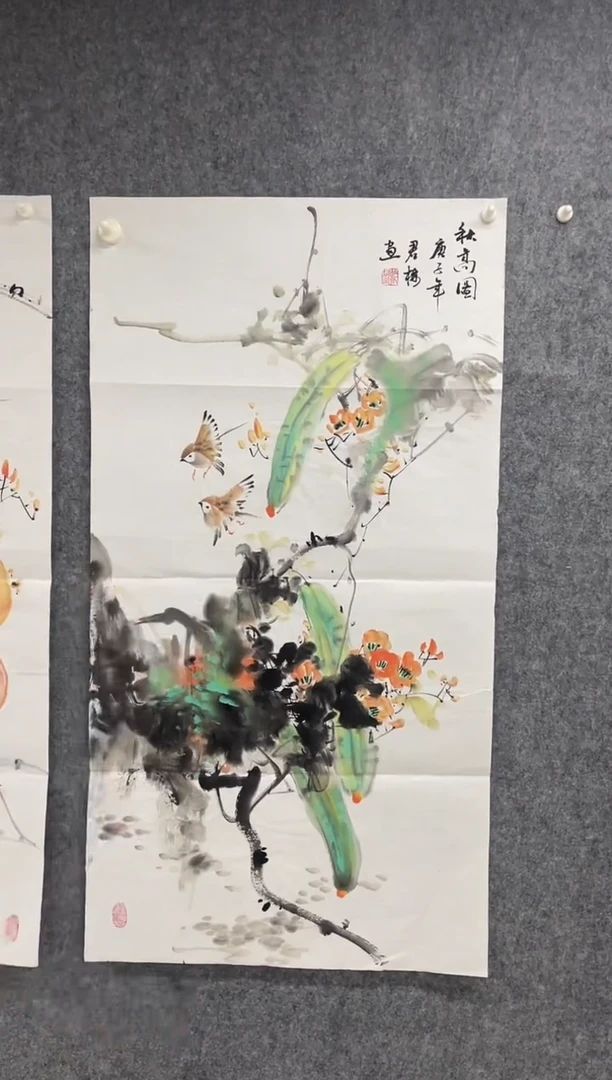 秋高图
庚子年
君梅
画